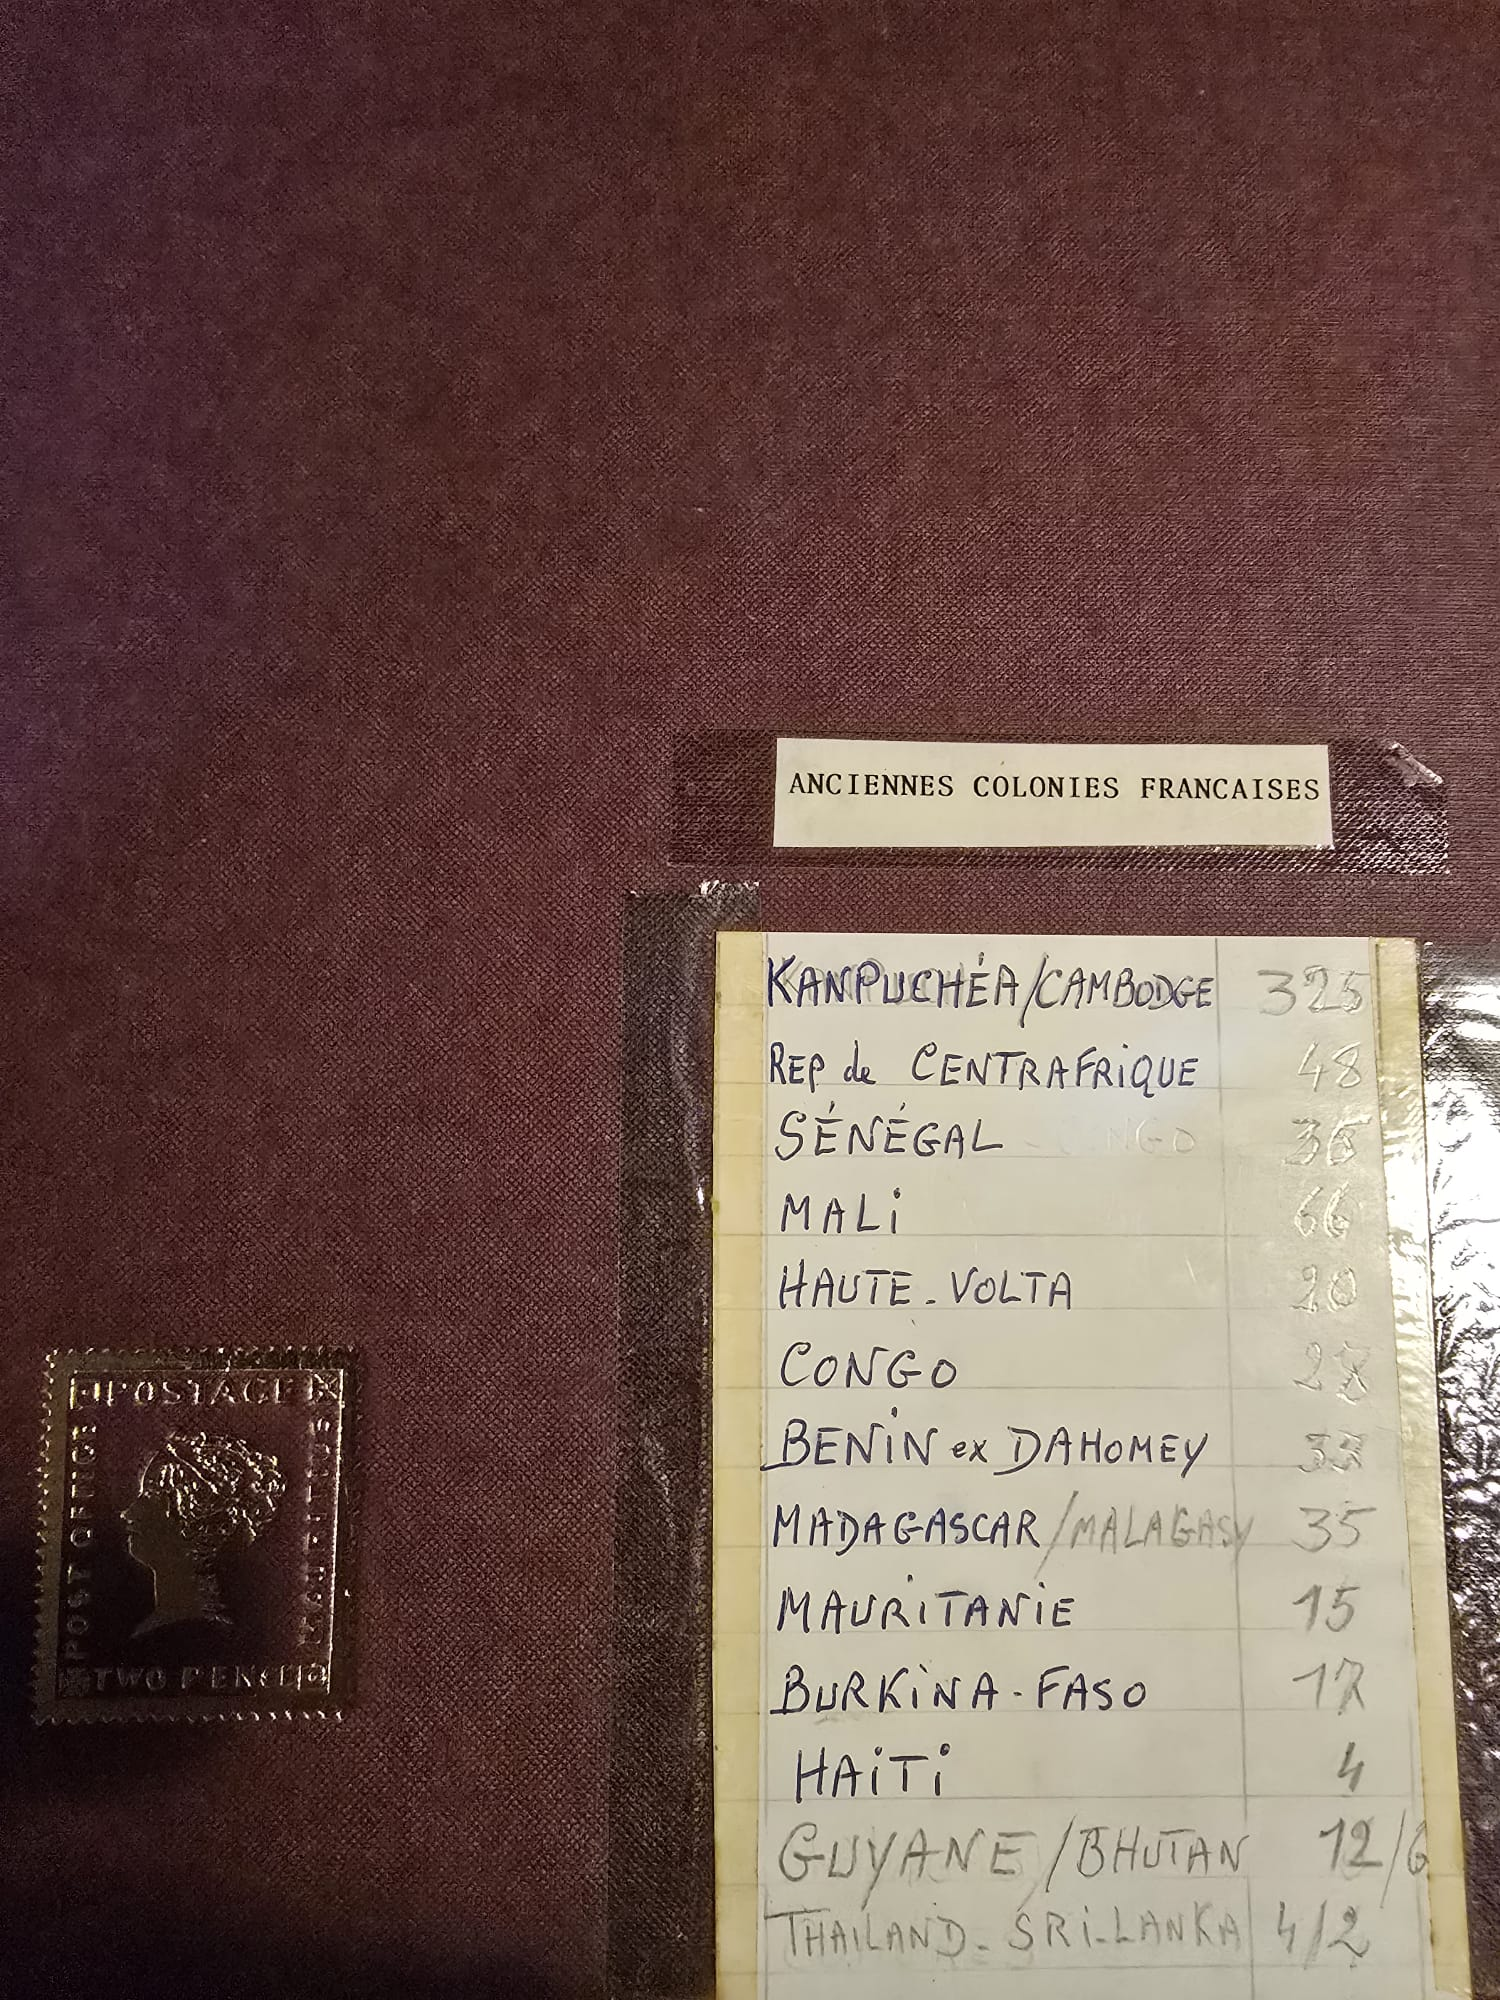 ANCIENNES COLONIES FRANCAISES
KANPUCHÉA/CAMBODGE 325
REP de CENTRAFRIQUE 48
SÉNÉGAL
MALi 66
HAUTE-VOLTA 20
CONGO 28
BENiN ex DAHOMEY 33
MADAGASCAR/MALAGASY 35
MAURiTANiE 15
BURKiNA-FASO
HAiTi 4
GUYANE/BHUTAN 12/6
THAILAND-SRi-LANKA 4/2
POSTAGE
POST OFFICE
MAURITIUS
TWO PENCE